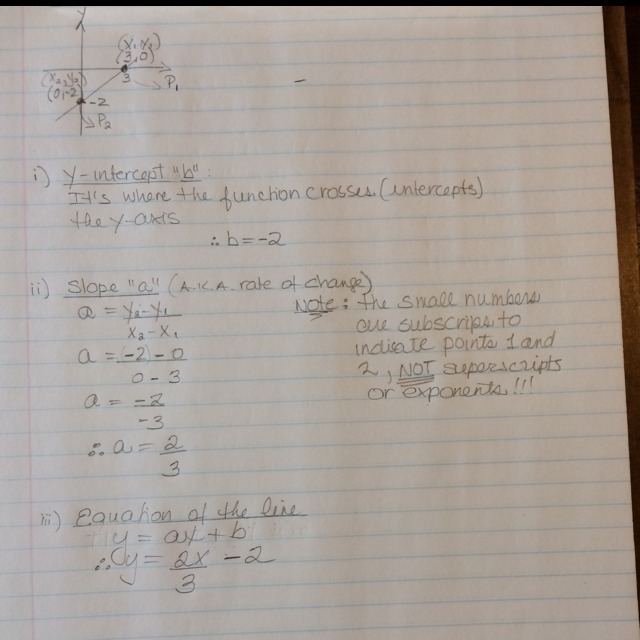 y
(x₁, y₁)
(3, 0)
(x₂, y₂)
(0, -2)
3
P₁
-2
P₂
i) y-intercept "b":
It's where the function crosses (intercepts)
the y-axis
∴ b = -2
ii) Slope "a" (A.K.A. rate of change)
a = y₂-y₁
x₂-x₁
a = (-2) - 0
0 - 3
a = -2
-3
∴ a = 2
3
Note: the small numbers
are subscrips to
indicate points 1 and
2, NOT superscripts
or exponents!!!
iii) Equation of the line
y = ax + b
∴ y = 2x - 2
3